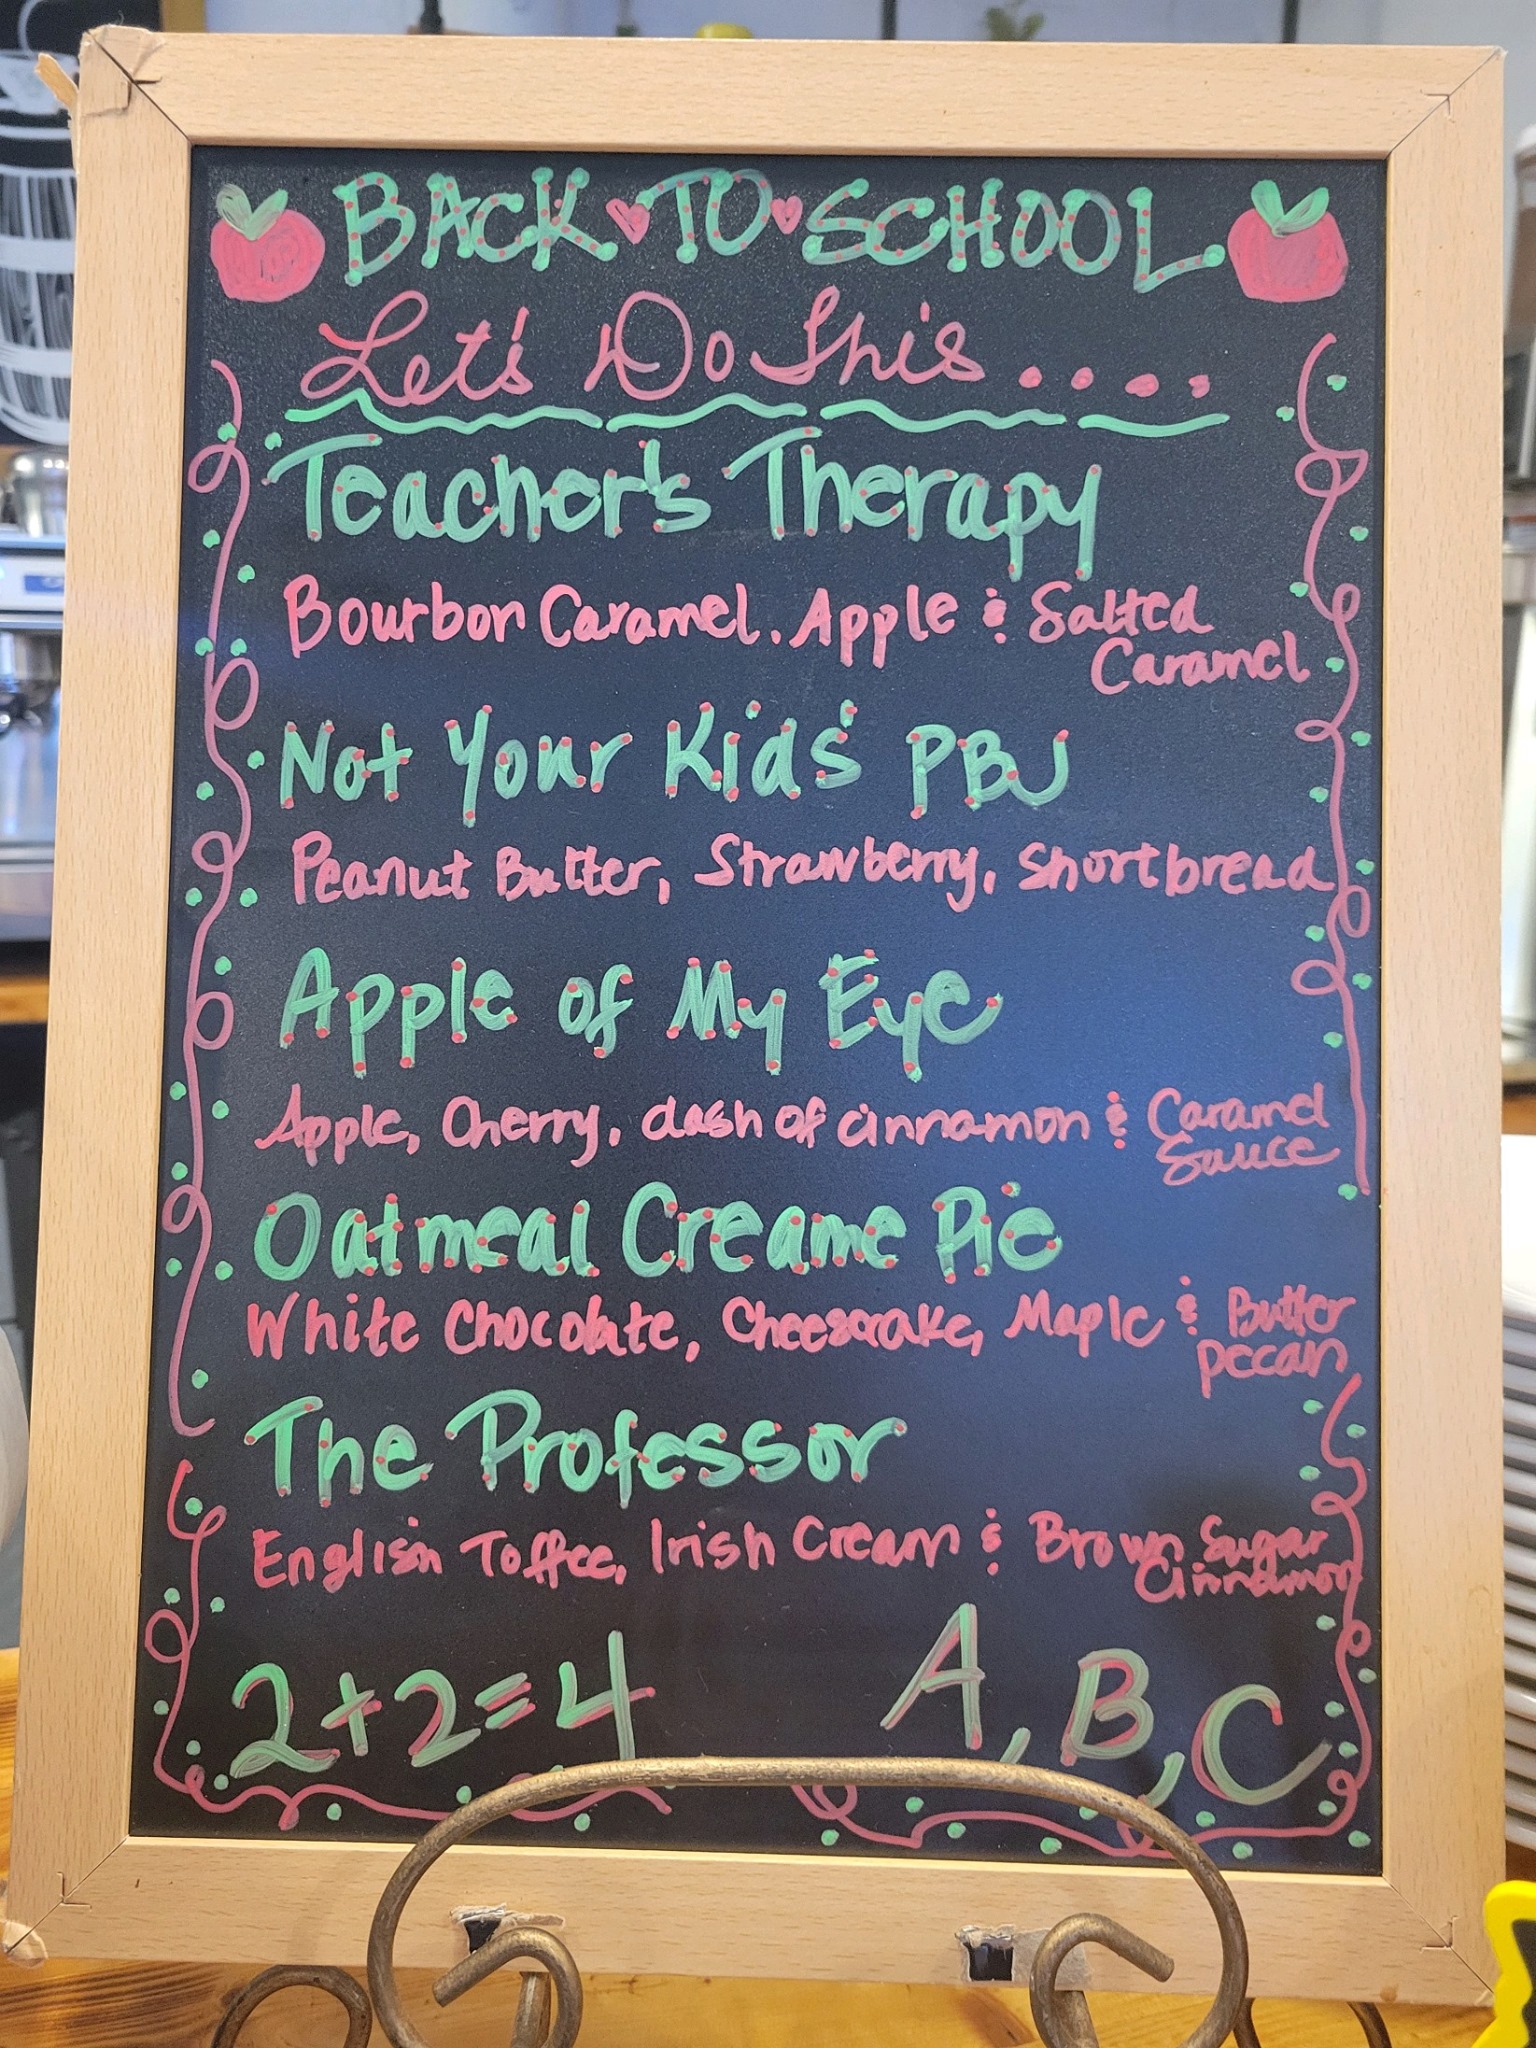 BACK TO SCHOOL
Let's Do This....
Teacher's Therapy
Bourbon Caramel. Apple & Salted
Caramel
Not Your Kid's PBJ
Peanut Butter, Strawberry, Shortbread
Apple of My Eye
Apple, Cherry, dash of cinnamon & Caramel
Sauce
Oatmeal Creame Pie
White Chocolate, Cheesecake, Maple & Butter
pecan
The Professor
English Toffee, Irish Cream & Brown Sugar
Cinnamon
2+2=4 A, B, C